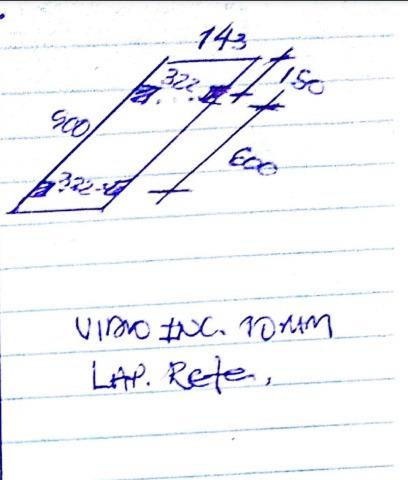 143
322
150
900
600
322
VIDRO INC. 10MM
LAP. Reto.